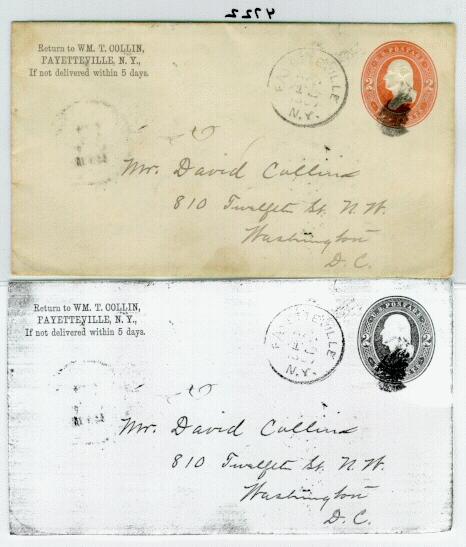 4722
Return to WM. T. COLLIN,
FAYETTEVILLE, N. Y.,
If not delivered within 5 days.
FAYETTEVILLE
N.Y.
U.S. POSTAGE
2 2
Mr. David Collins
810 Twelfth St. N.W.
Washington
D.C.
Return to WM. T. COLLIN,
FAYETTEVILLE, N. Y.,
If not delivered within 5 days.
FAYETTEVILLE
N.Y.
U.S. POSTAGE
2 2
Mr. David Collins
810 Twelfth St. N.W.
Washington
D.C.